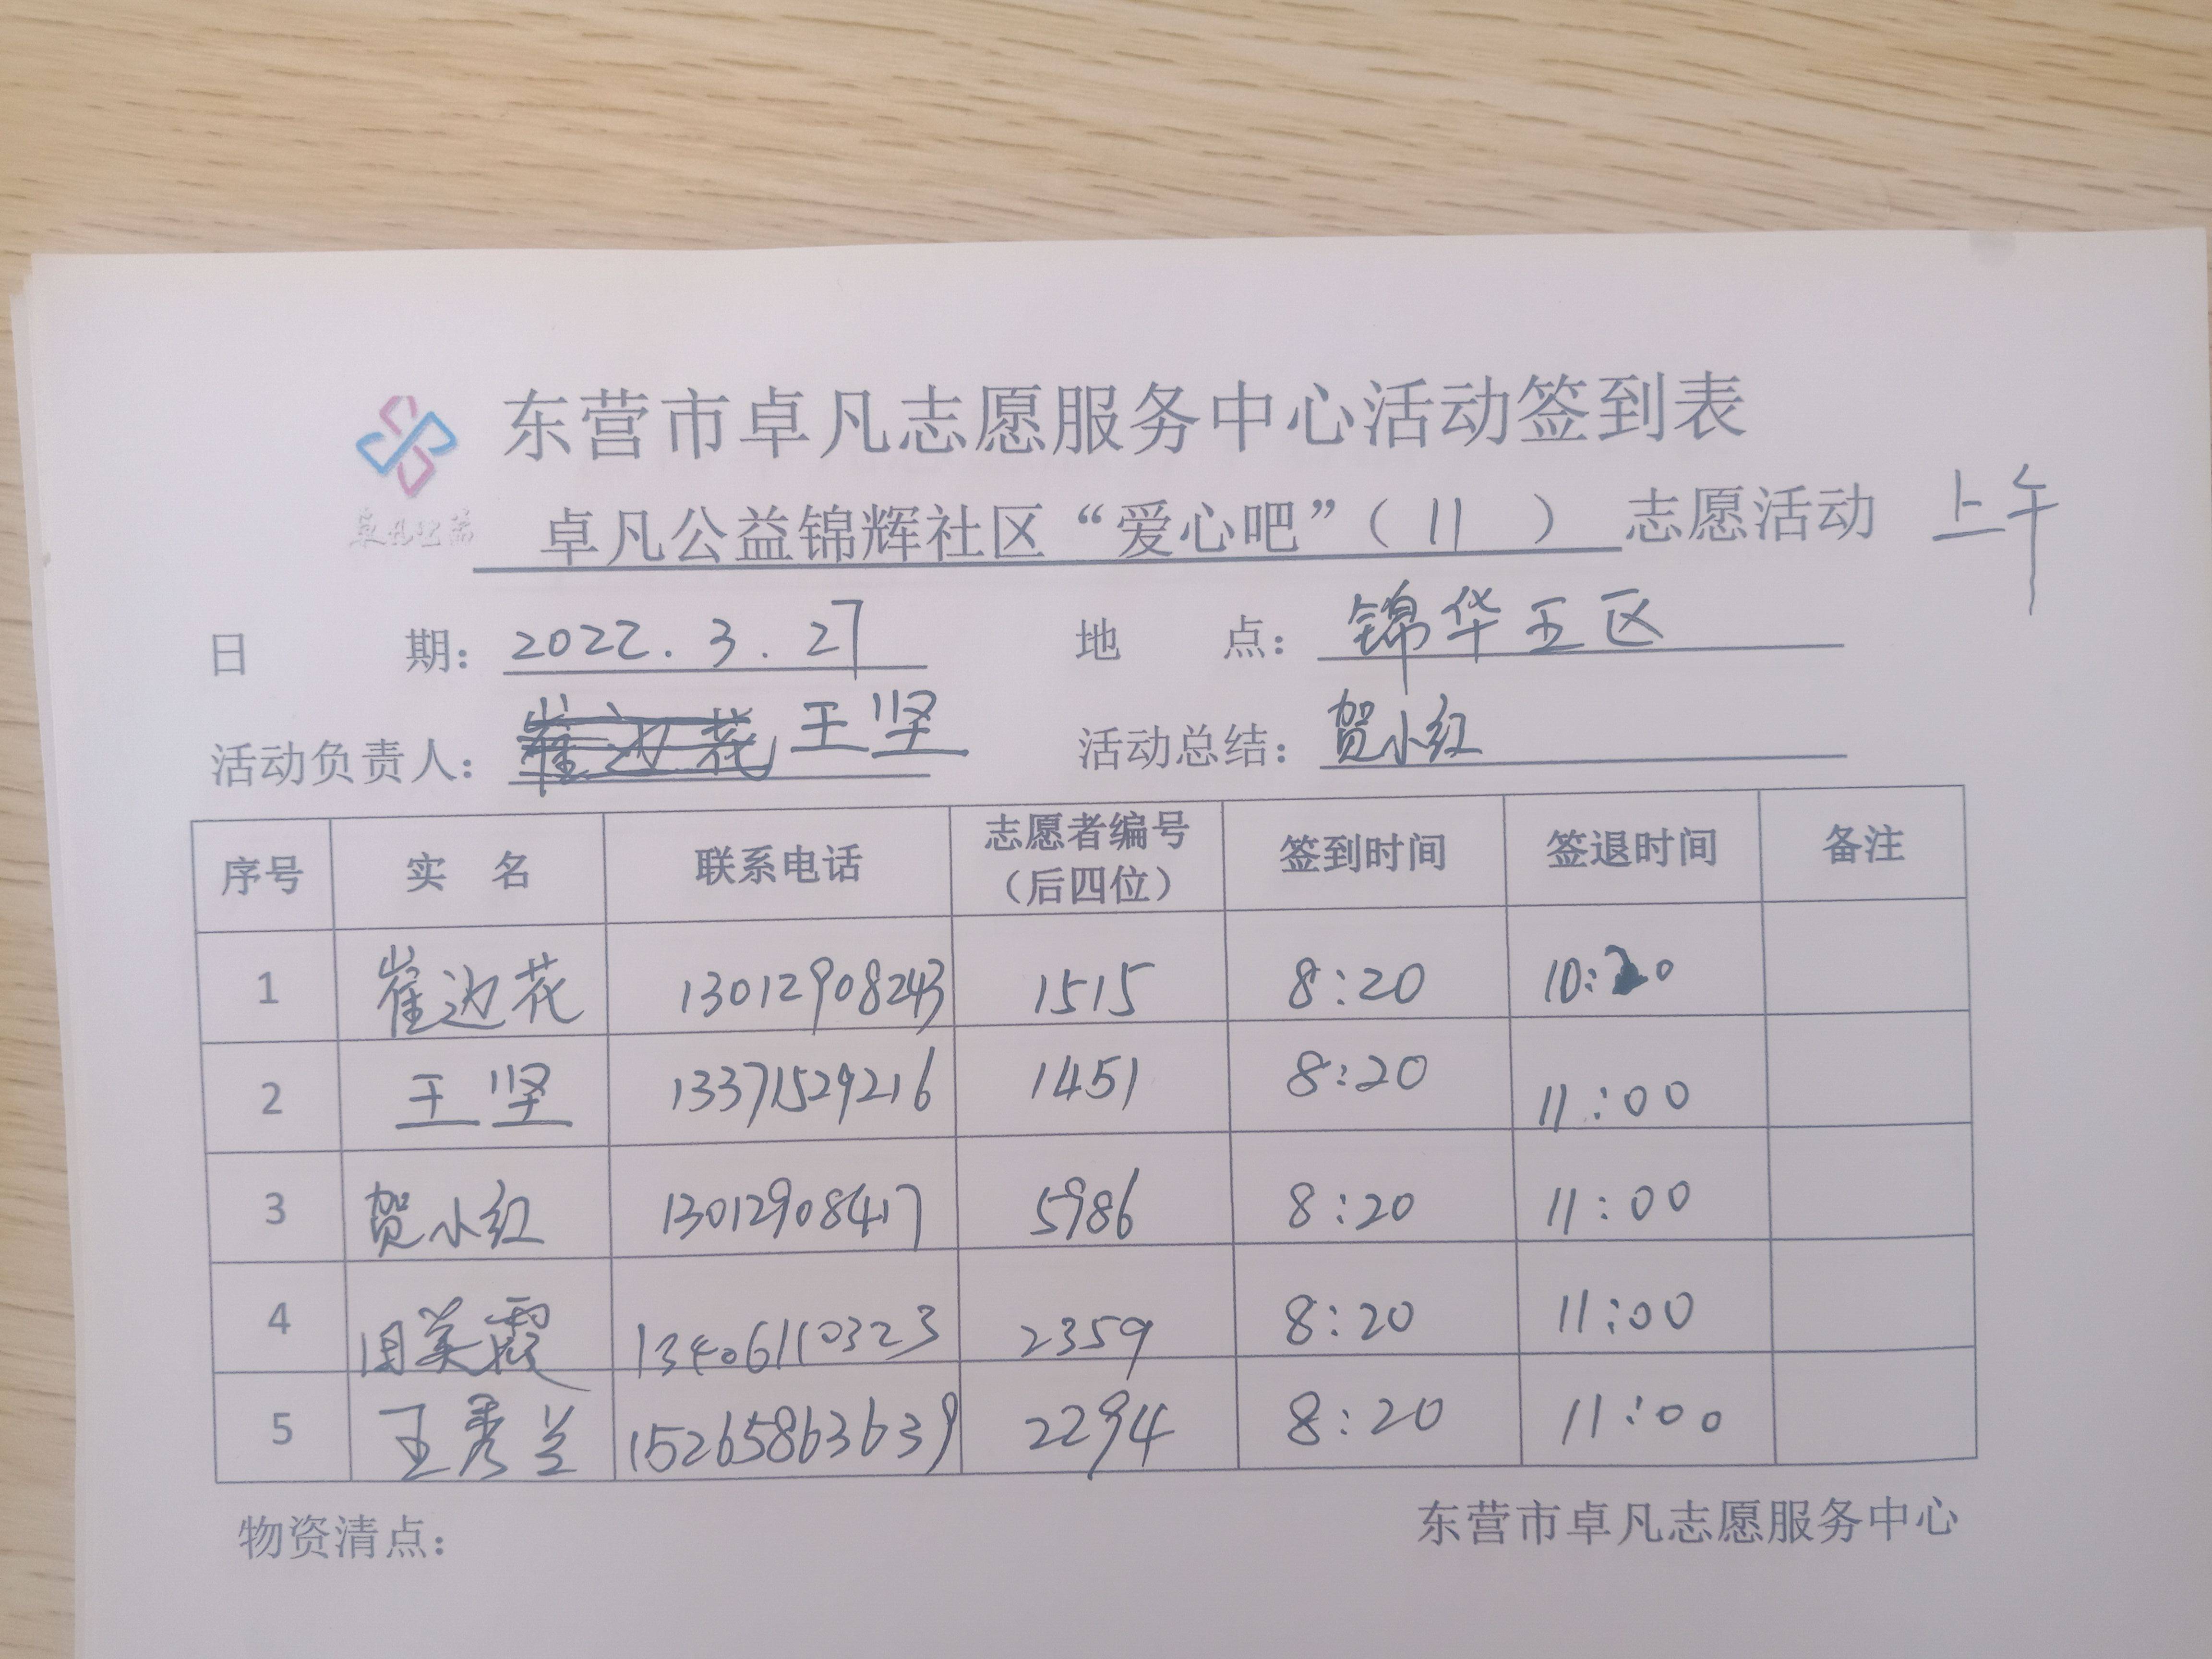 东营市卓凡志愿服务中心活动签到表
卓凡公益锦辉社区“爱心吧”（ 11 ）志愿活动 上午
日 期： 2022.3.27 地 点： 锦华五区
活动负责人： 崔边花 王坚 活动总结： 贺小红
序号 实 名 联系电话 志愿者编号（后四位） 签到时间 签退时间 备注
1 崔边花 13012908243 1515 8:20 10:20
2 王坚 13371529216 1451 8:20 11:00
3 贺小红 13012908417 5986 8:20 11:00
4 美霞 13406110323 2359 8:20 11:00
5 王秀兰 15265863639 2294 8:20 11:00
物资清点： 东营市卓凡志愿服务中心